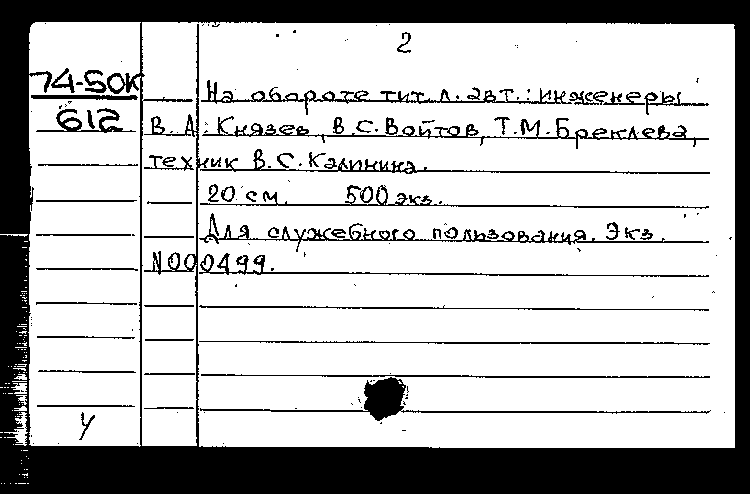 2
74-50К
612
На обороте тит.л. авт.: инженеры
В.А. Князев, В.С. Войтов, Т.М. Бреклева,
техник В.С. Калинина.
20 см. 500 экз.
Для служебного пользования. Экз.
N000499.
У